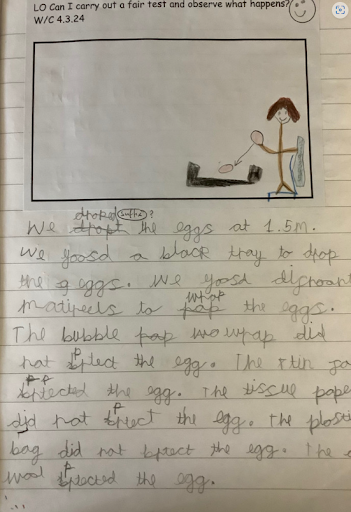 LO Can I carry out a fair test and observe what happens?
W/C 4.3.24
droped suffix?
We dropt the eggs at 1.5m.
We yoosd a black tray to drop
the g eggs. We yoosd difroant
wrap
to pap the eggs.
The bubble rap wrap did
not the egg. The
the egg. The tissue pape
did not the egg. The plasti
bag did not the egg. The
wool the egg.